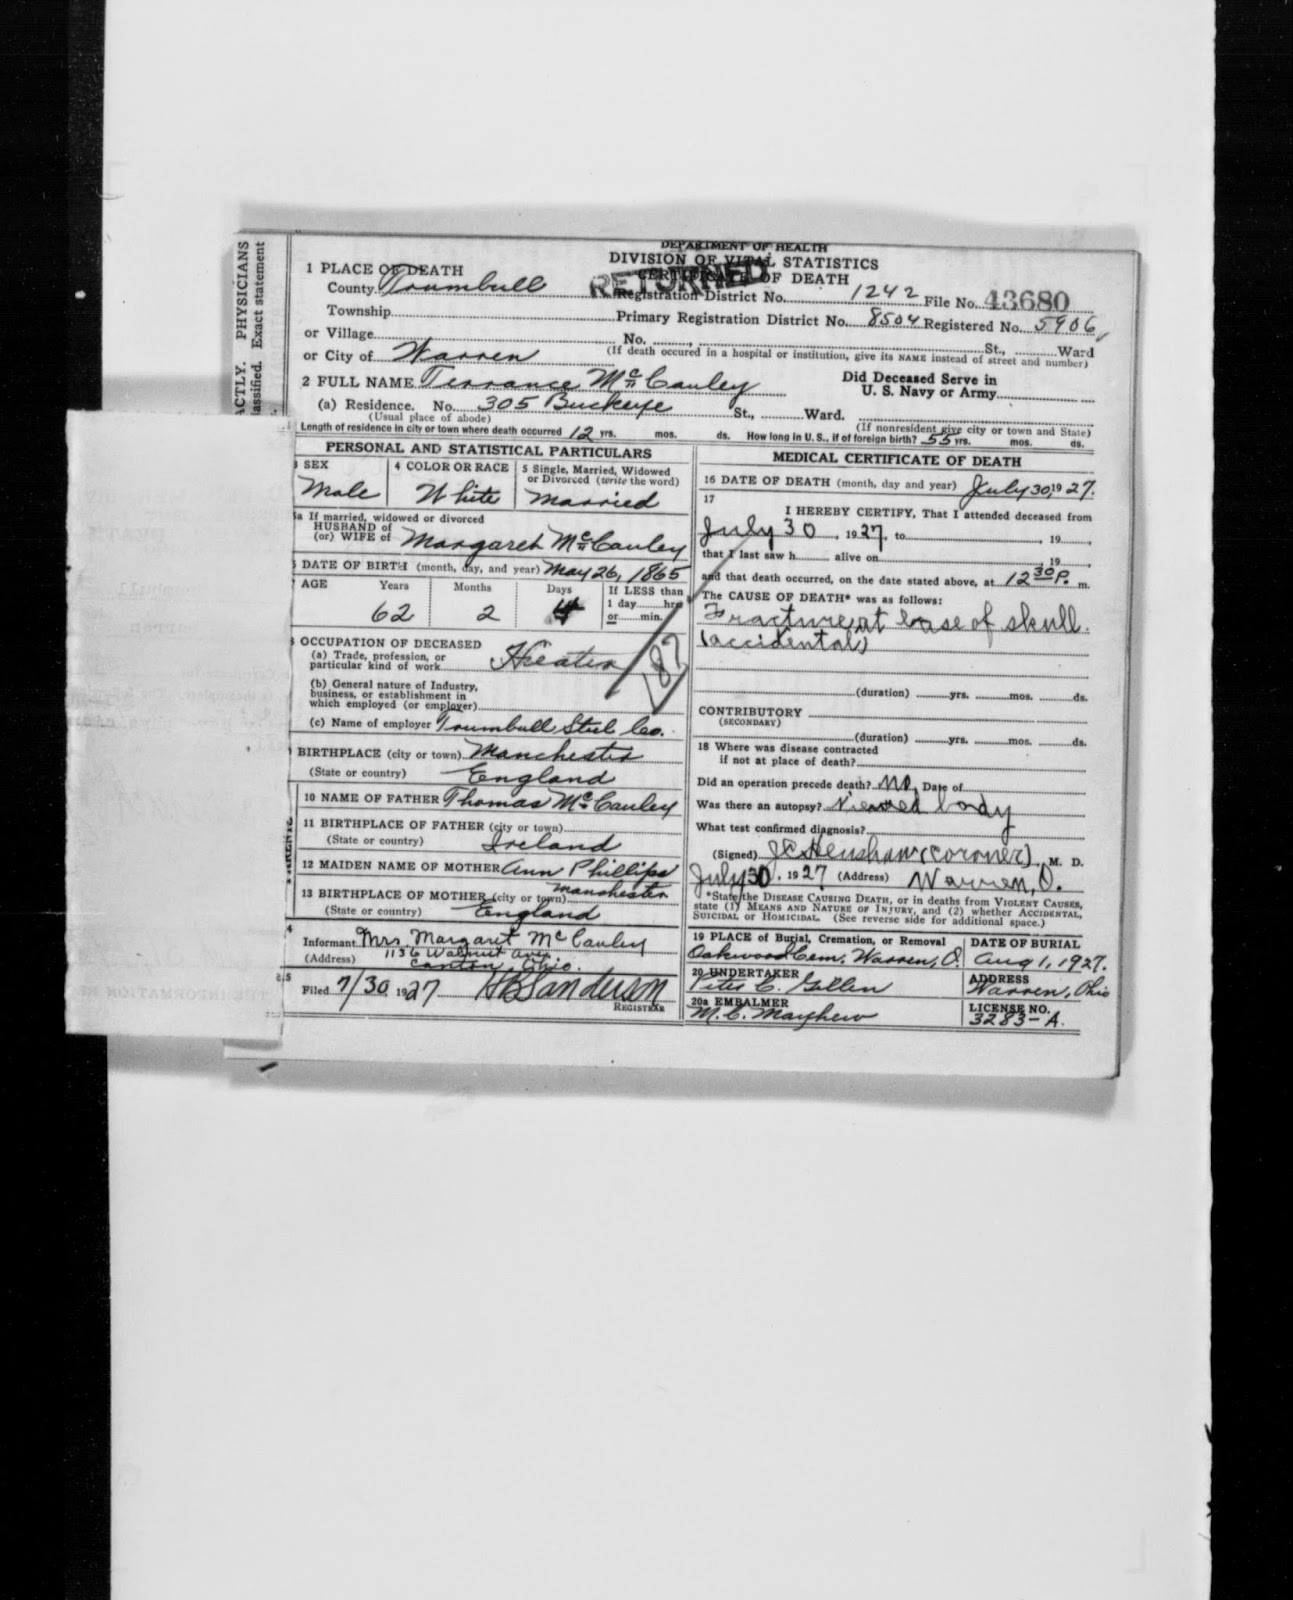 DEPARTMENT OF HEALTH
DIVISION OF VITAL STATISTICS
CERTIFICATE OF DEATH
RETURNED
PHYSICIANS
Exact statement
1 PLACE OF DEATH
County Trumbull
Registration District No. 1242 File No. 43680
Township Primary Registration District No. 8504 Registered No. 5906
or Village No. , St., Ward
or City of Warren (If death occured in a hospital or institution, give its NAME instead of street and number)
2 FULL NAME Terrance McCauley
Did Deceased Serve in
U. S. Navy or Army
(a) Residence. No. 305 Buckeye St., Ward.
(Usual place of abode) (If nonresident give city or town and State)
Length of residence in city or town where death occurred 12 yrs. mos. ds. How long in U. S., if of foreign birth? 55 yrs. mos. ds.
PERSONAL AND STATISTICAL PARTICULARS
3 SEX
Male
4 COLOR OR RACE
White
5 Single, Married, Widowed
or Divorced (write the word)
Married
5a If married, widowed or divorced
HUSBAND of
(or) WIFE of Margaret McCauley
6 DATE OF BIRTH (month, day, and year) May 26, 1865
7 AGE Years Months Days If LESS than
1 day hrs
or min.
62 2 4
8 OCCUPATION OF DECEASED
(a) Trade, profession, or
particular kind of work Heater
187
(b) General nature of Industry,
business, or establishment in
which employed (or employer)
(c) Name of employer Trumbull Steel Co.
9 BIRTHPLACE (city or town) Manchester
(State or country) England
PARENTS
10 NAME OF FATHER Thomas McCauley
11 BIRTHPLACE OF FATHER (city or town)
(State or country) Ireland
12 MAIDEN NAME OF MOTHER Ann Phillips
13 BIRTHPLACE OF MOTHER (city or town) Manchester
(State or country) England
14
Informant Mrs. Margaret McCauley
(Address) 1136 Walnut Ave.
Canton, Ohio.
15
Filed 7/30, 1927 HB Sanderson
REGISTRAR
MEDICAL CERTIFICATE OF DEATH
16 DATE OF DEATH (month, day and year) July 30, 1927.
17
I HEREBY CERTIFY, That I attended deceased from
July 30, 1927, to , 19
that I last saw h alive on , 19
and that death occurred, on the date stated above, at 12 30 P. m.
The CAUSE OF DEATH* was as follows:
Fracture at base of skull.
(accidental)
(duration) yrs. mos. ds.
CONTRIBUTORY
(SECONDARY)
(duration) yrs. mos. ds.
18 Where was disease contracted
if not at place of death?
Did an operation precede death? No. Date of
Was there an autopsy? Viewed body
What test confirmed diagnosis?
(Signed) JC Henshaw (coroner) M. D.
July 30, 1927 (Address) Warren, O.
*State the DISEASE CAUSING DEATH, or in deaths from VIOLENT CAUSES,
state (1) MEANS AND NATURE OF INJURY, and (2) whether ACCIDENTAL,
SUICIDAL or HOMICIDAL. (See reverse side for additional space.)
19 PLACE of Burial, Cremation, or Removal
Oakwood Cem. Warren, O.
DATE OF BURIAL
Aug 1, 1927.
20 UNDERTAKER
Peter C. Gillen
ADDRESS
Warren, Ohio
20a EMBALMER
M. C. Mayhew
LICENSE NO.
3283-A.